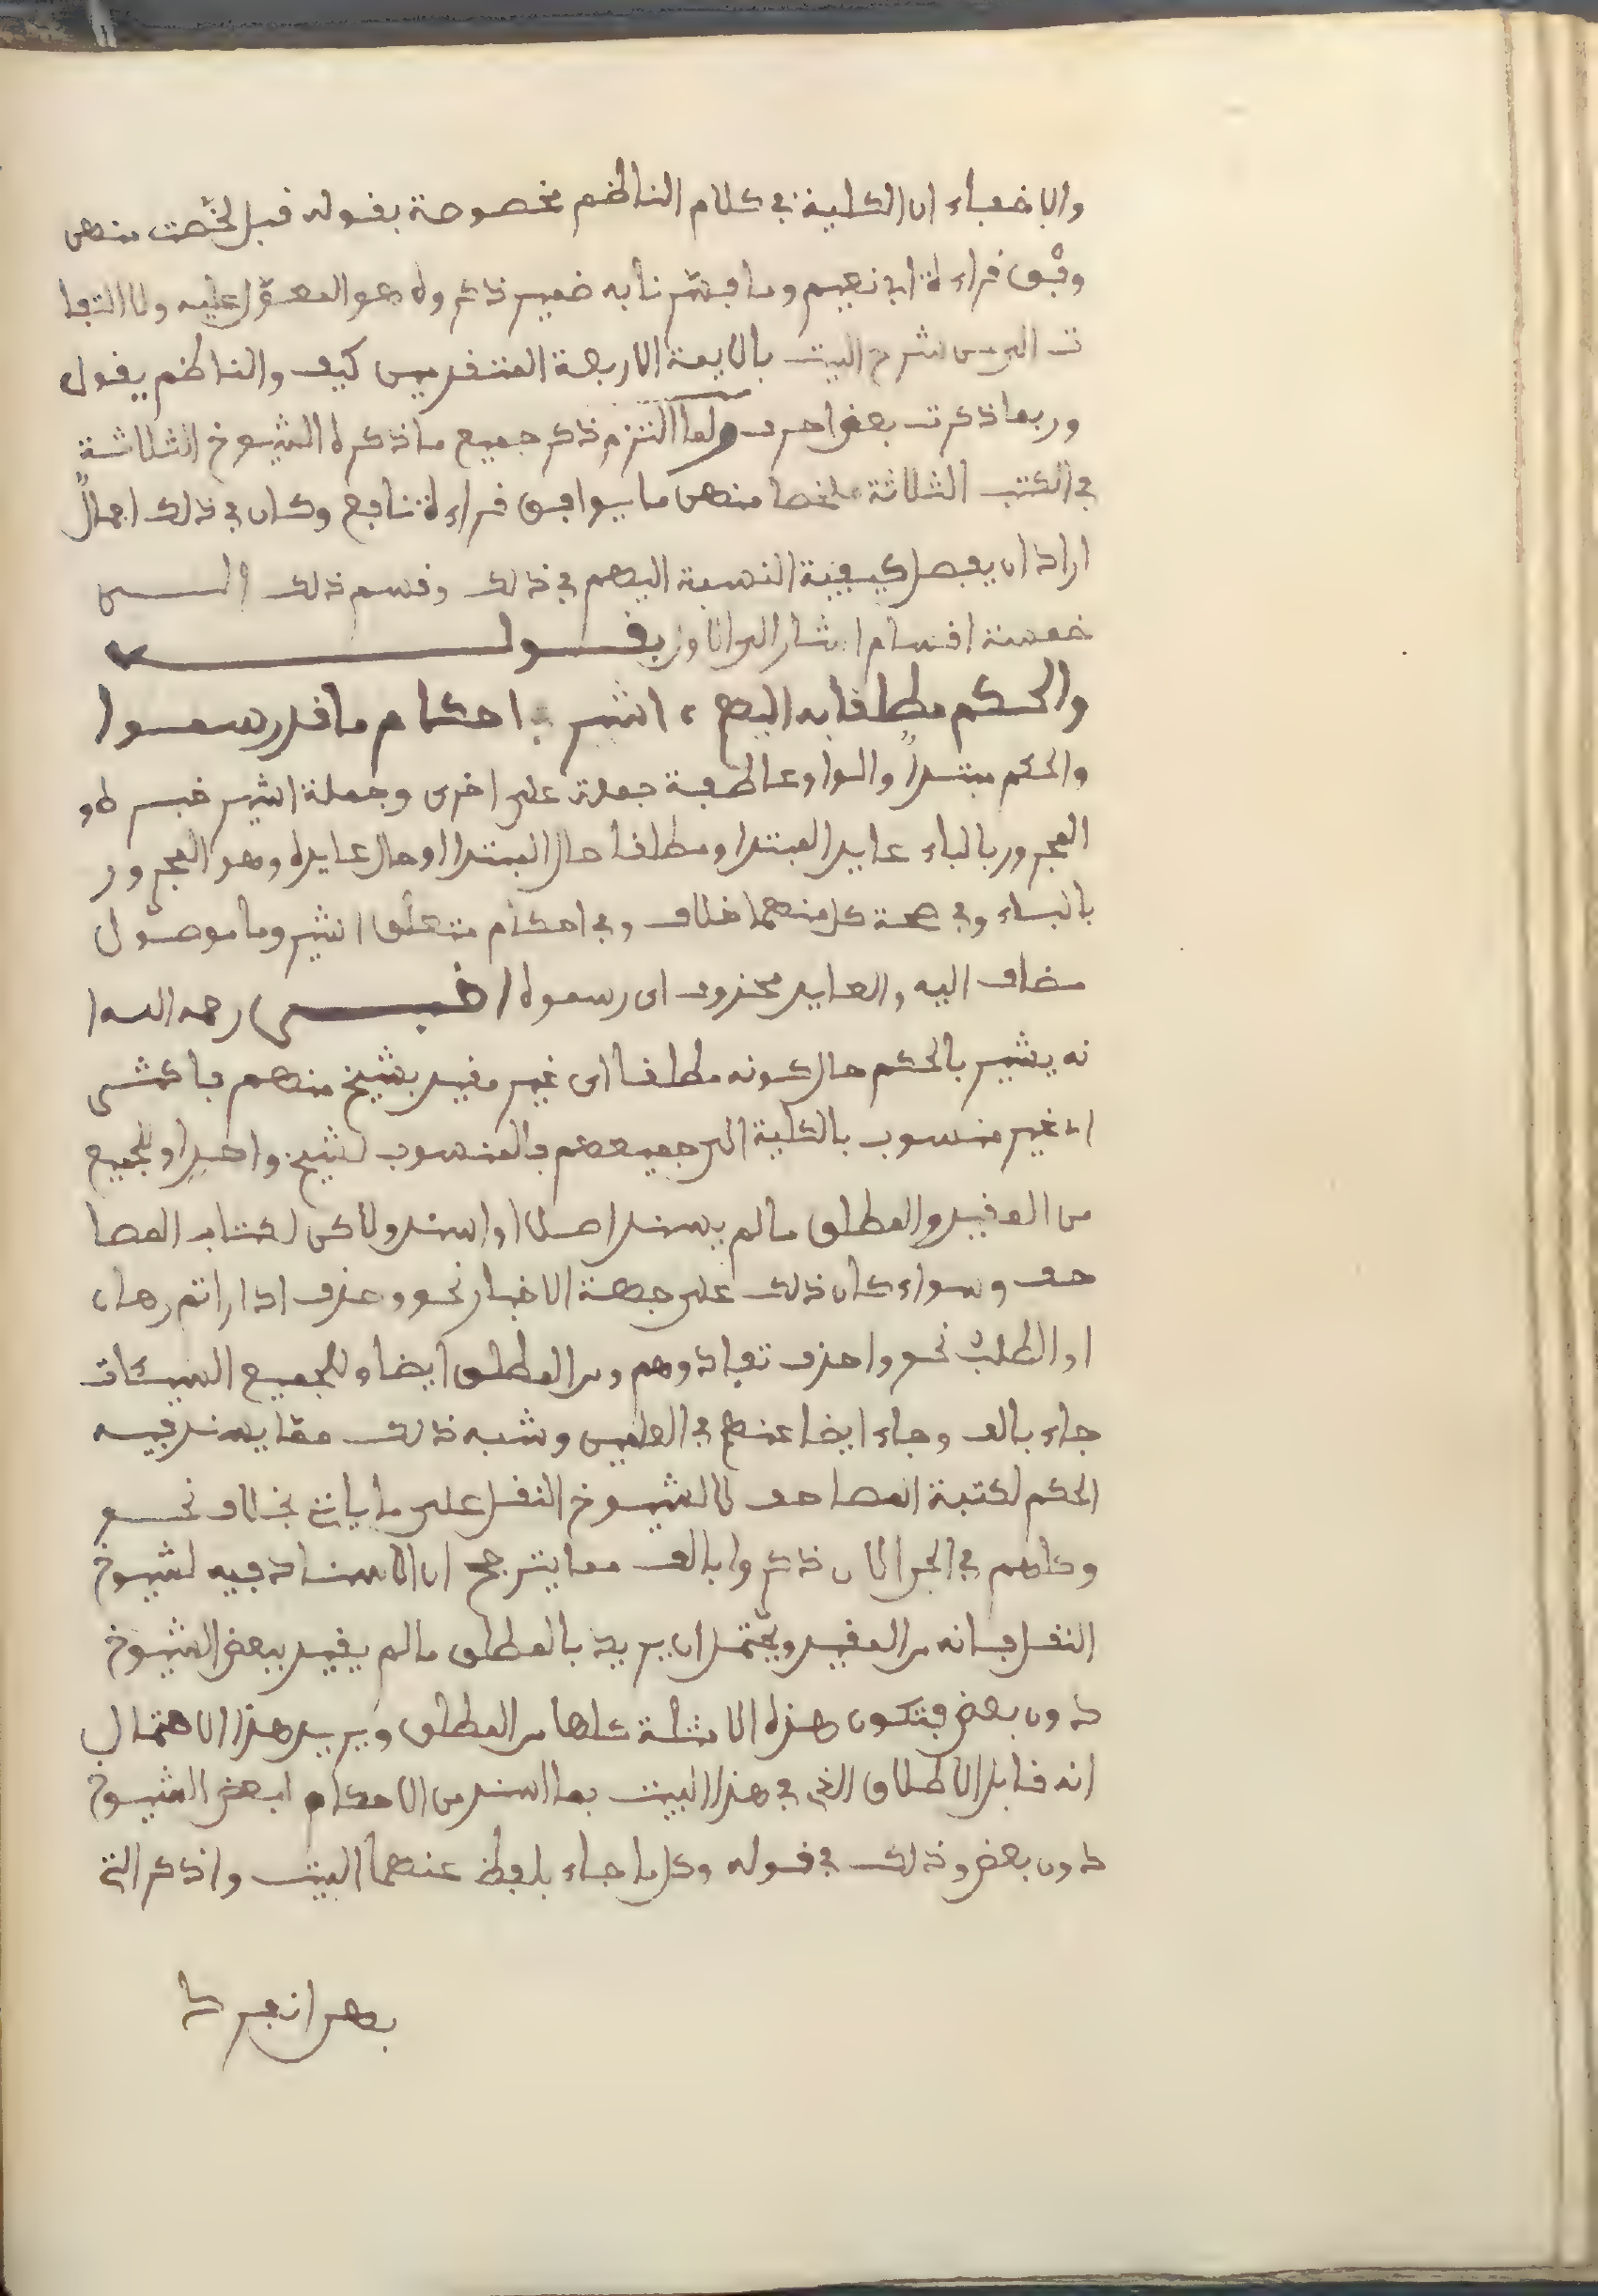 ولا خفاء ان الكلية في كلام الناظم مخصوصة بقوله قبل لخصت منهن
وفق قراءة ابي نعيم وما فسرنا به ضمير ذكروه هو المعول عليه ولا التفا
ت الى من شرح البيت بالايمة الاربعة المتقدمين كيف والناظم يقول
وربما ذكرت بعض احرف ولما التزم ذكر جميع ما ذكره الشيوخ الثلاثة
في الكتب الثلاثة ملخصا منهن ما يوافق قراءة نافع وكان في ذلك اجمال
اراد ان يفصل كيفية النسبة اليهم في ذلك وقسم ذلك الى
خمسة اقسام اشار الى الاول بقوله
والحكم مطلقا به اليهم ، اشير باحكام ما قد رسموا
والحكم مبتدأ والواو عاطفة جملة على اخرى وجملة اشير خبره و
المجرور بالباء عايد المبتدا ومطلقا حال المبتدا او حال عايده وهو المجرور
بالباء وفي صحة كل منهما خلاف وفي احكام متعلق اشير وما موصول
مضاف اليه والعايد محذوف اى رسموه اخبر رحمه الله ا
نه يشير بالحكم حال كونه مطلقا اى غير مقيد بشيخ منهم باكثر
اى غير منسوب بالكلية الى جميعهم فالمنسوب لشيخ واحد او للجميع
من المقيد والمطلق ما لم يسند اصلا او اسند ولاكن لكتاب المصا
حف وسواء كان ذلك على جهة الاخبار نحو وحذف اداراتم رهان
او الطلب نحو واحذف تفادوهم ومن المطلق ايضا وللجميع السيئات
جاء بالف وجاء ايضا عنهم في العلمين وشبه ذلك مما يسند فيه
الحكم لكتبة المصاحف لا لشيوخ النقل على ما ياتي بخلاف نحو
وكلهم في الجر الان ذكروا بالف مما يترجح ان الاسناد فيه لشيوخ
النقل فانه من المقيد ويحتمل ان يريد بالمطلق ما لم يقيد ببعض الشيوخ
دون بعض فتكون هذه الامثلة كلها من المطلق ويريد هذا الاحتمال
انه قابل الاطلاق الذي في هذا البيت بما اسند من الاحكام لبعض الشيوخ
دون بعض وذلك في قوله وكل ما جاء بلفظ عنهما البيت واذكر التي
بهن انفردا